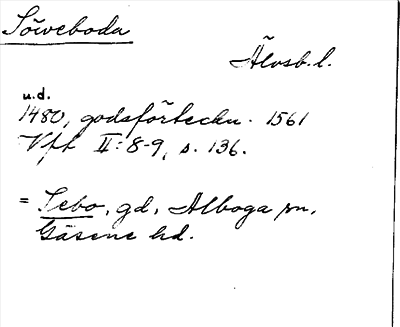 Söweboda
Älvsb. l.
u.d.
1480, godsförteckn. 1561
Vft II: 8-9, s. 136.
= Sebo, gd, Alboga sn,
Gäsene hd.